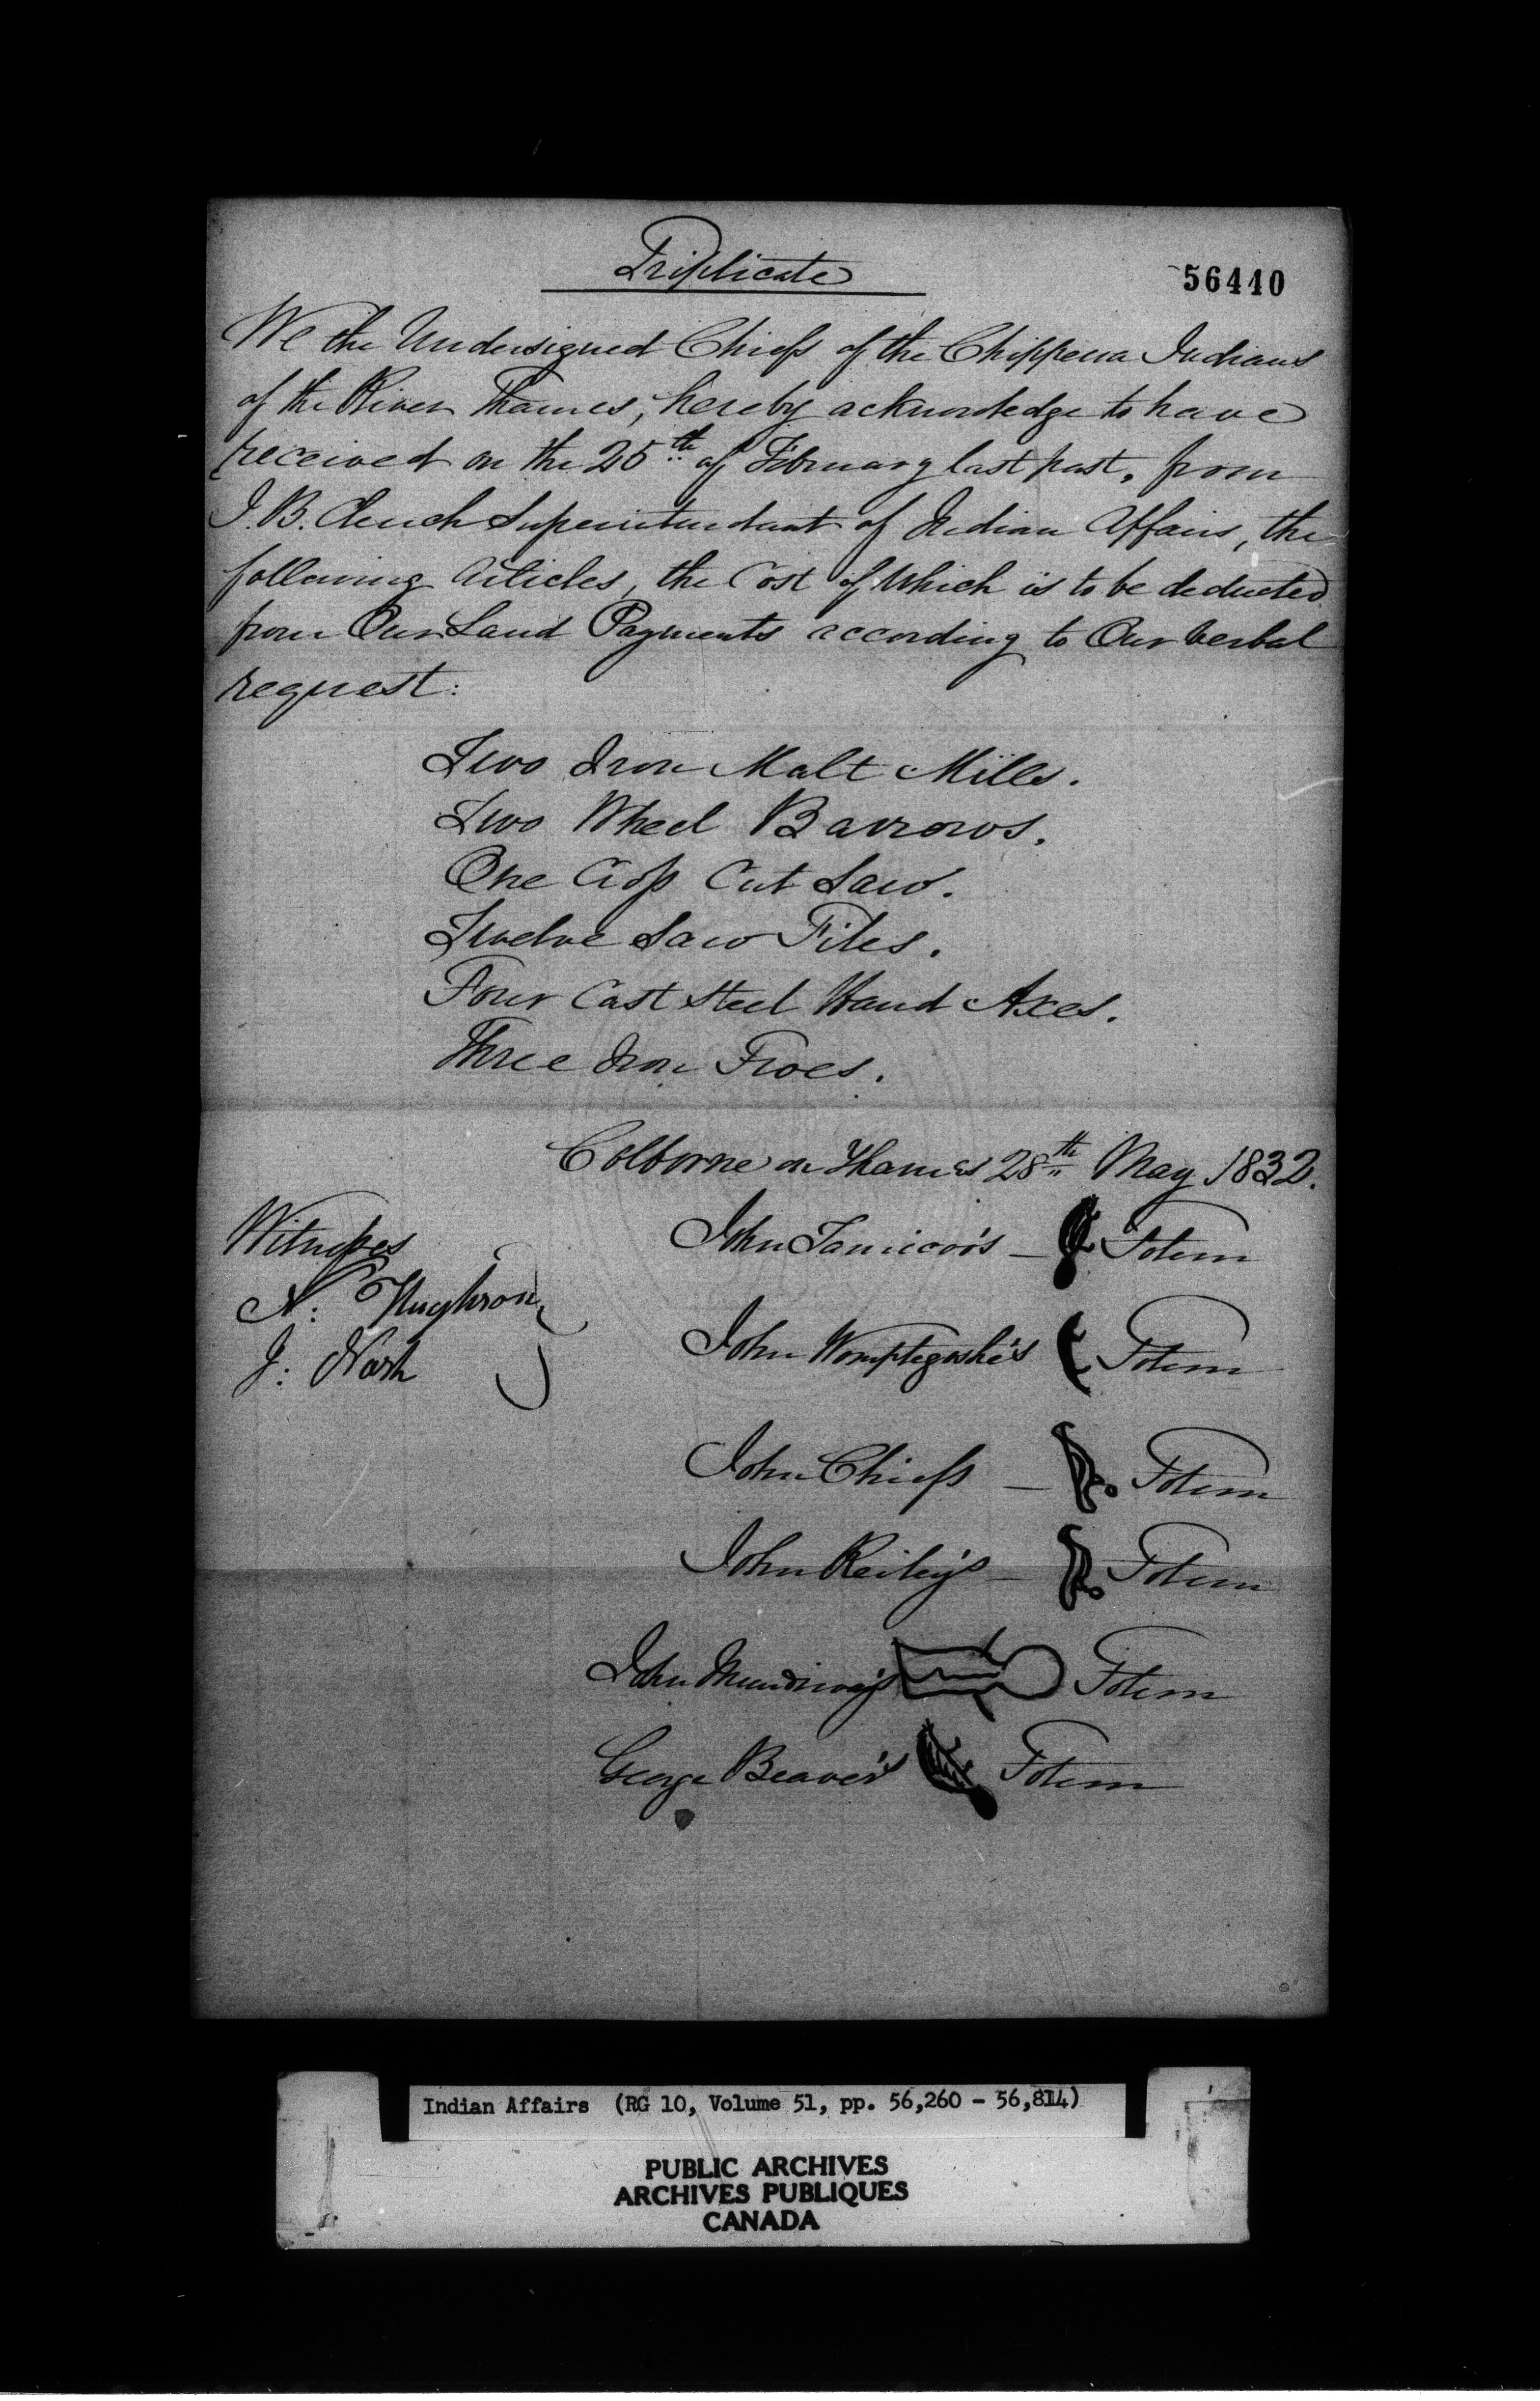 Triplicate
56440
We the Undersigned Chiefs of the Chippewa Indians
of the River Thames, hereby acknowledge to have
received on the 25th of February last past, from
J. B. Clench Superintendant of Indian Affairs, the
following Articles, the Cost of Which is to be deducted
from Our Land Payments according to Our verbal
request:
Two Iron Malt Mills.
Two Wheel Barrows.
One Cross Cut Saw.
Twelve Saw Files.
Four Cast Steel Hand Axes.
Three Iron Froes.
Colborne on Thames 28th May 1832.
Witnesses
John Tomicoo's – Totem
A: Hughson
John Womptegoshe's Totem
J: Nash
John Chiefs – Totem
John Reiley's – Totem
John Totem
George Beaver's Totem
Indian Affairs (RG 10, Volume 51, pp. 56,260 - 56,814)
PUBLIC ARCHIVES
ARCHIVES PUBLIQUES
CANADA